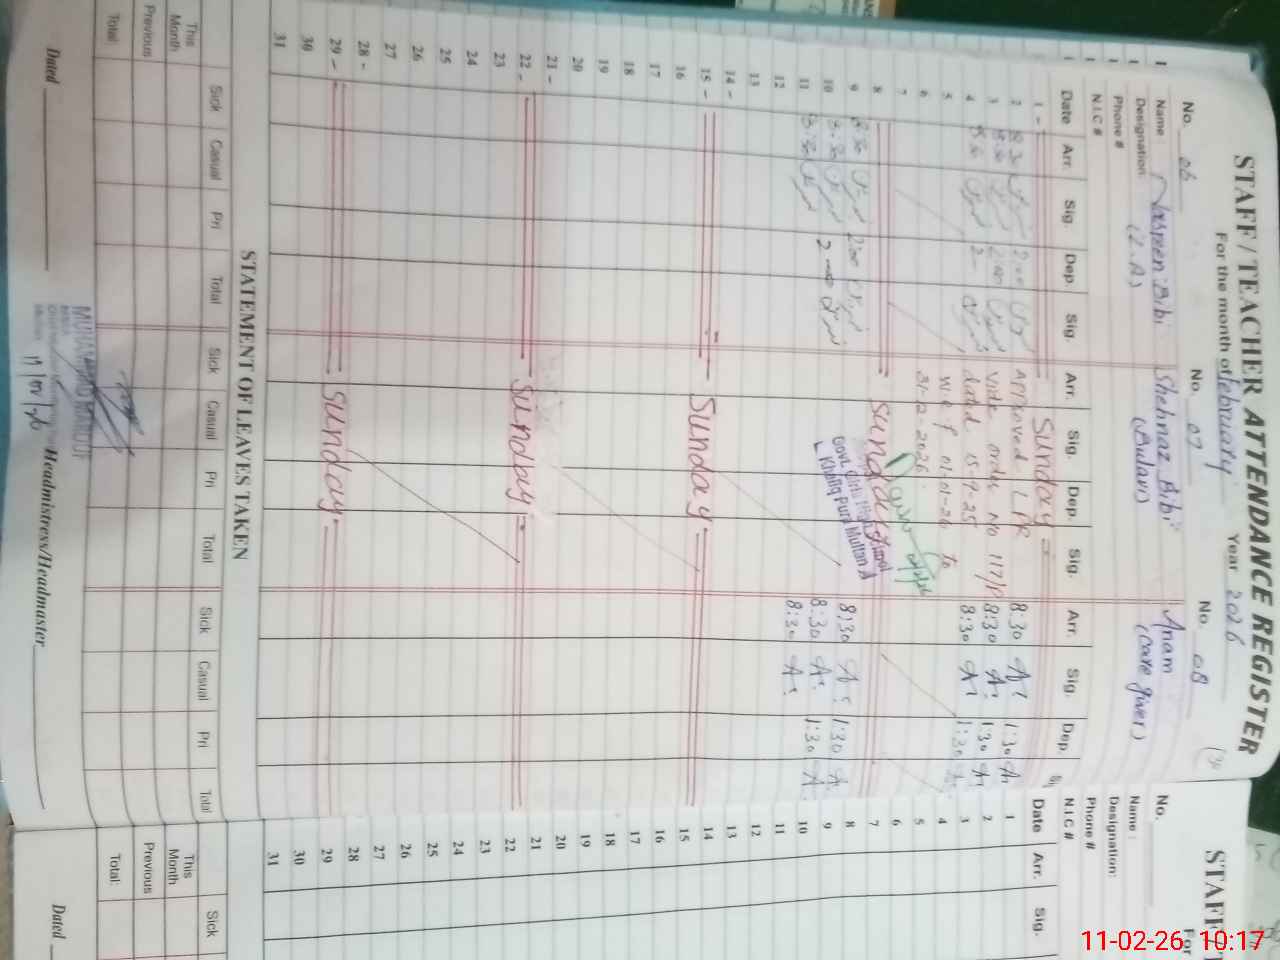 STAFF/TEACHER ATTENDANCE REGISTER
For the month of february Year 2026
No. 06 No. 07 No. 08
Name : Naseen Bibi Shehnaz Bibi Anam
Designation: (Z.A) (Bulavi) (Care giver)
Phone #
N.I.C #
Date Arr. Sig. Dep. Sig. Arr. Sig. Dep. Sig. Arr. Sig. Dep.
1 - Sunday =
2 8:30 2:00 Approved LPR 8:30 1:30
3 8:30 2:00 vide order No 117/P 8:30 1:30
4 8:30 2 - dated 15-9-25 8:30 1:30
5 w.e.f 01-01-26 to
6 31-2-2026
7
8 Sunday
9 8:30 2:00 Govt. Girls High School 8:30 1:30
10 8:30 2 Khaliq Pura Multan 8:30 1:30
11 8:30 8:30
12
13
14 -
15 - Sunday
16
17
18
19
20
21 -
22 - Sunday
23
24
25
26
27
28 -
29 - Sunday
30
31
STATEMENT OF LEAVES TAKEN
Sick Casual Pri Total Sick Casual Pri Total Sick Casual Pri Total
This Month
Previous
Total:
MUHAMMAD MAROOF
Dated Headmistress/Headmaster
STAFF/T
For
No.
Name :
Designation:
Phone #
N.I.C #
Date Arr. Sig.
1
2
3
4
5
6
7
8
9
10
11
12
13
14
15
16
17
18
19
20
21
22
23
24
25
26
27
28
29
30
31
Sick
This Month
Previous
Total:
Dated
11-02-26 10:17